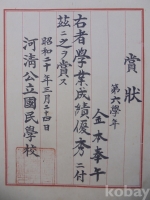 賞狀
第六學年
金本奉午
右者學業成績優秀ニ付
玆ニ之ヲ賞ス
昭和二十年三月二十四日
河清公立國民學校
kobay